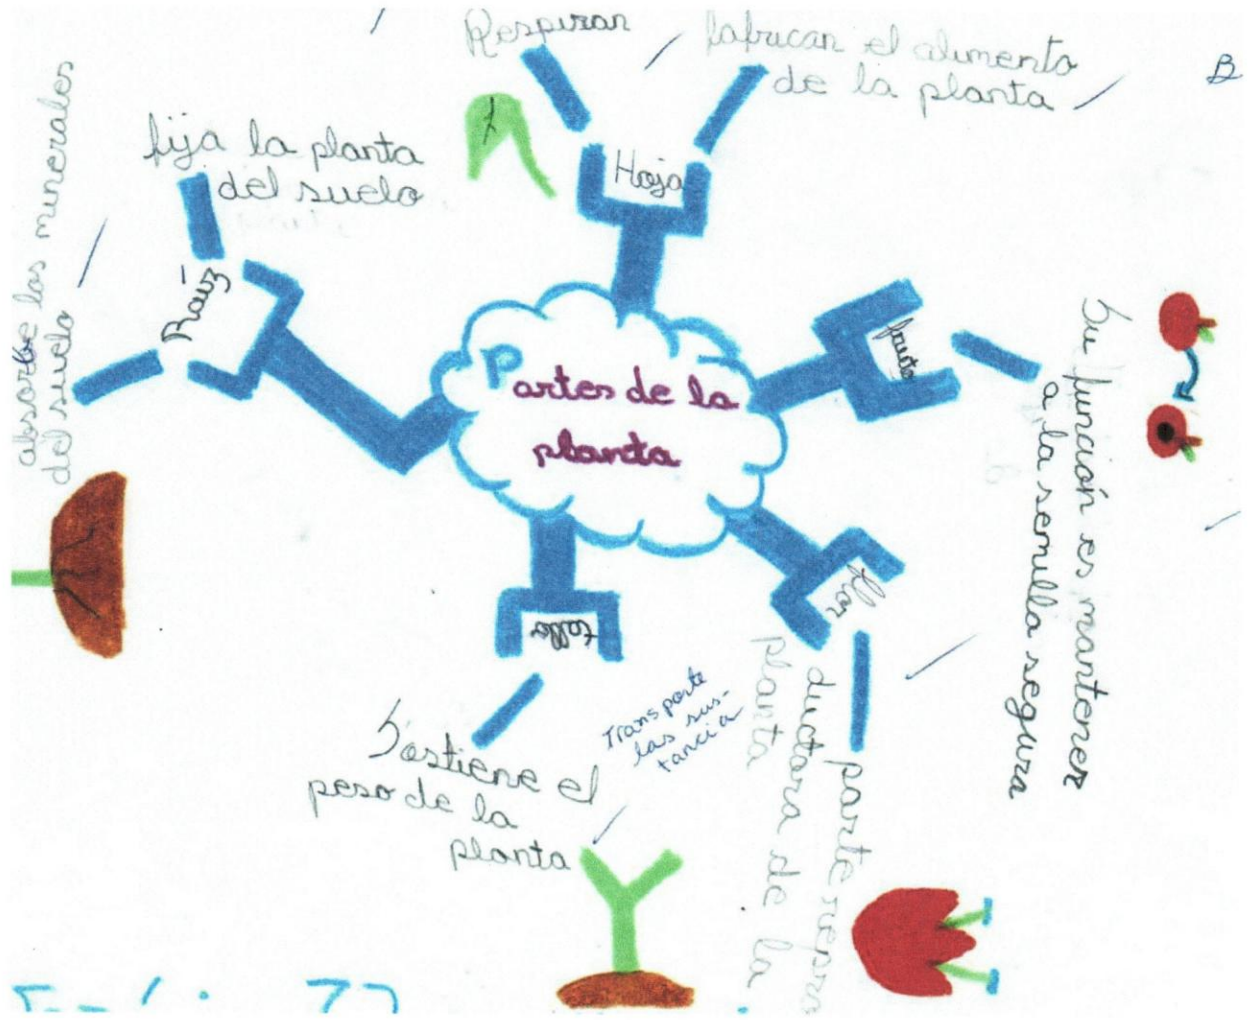 Partes de la
planta
Hoja
Respiran
fabrican el alimento
de la planta
B
fruto
Su función es mantener
a la semilla segura
flor
parte repro
ductora de la
planta
tallo
Sostiene el
peso de la
planta
Transporte
las sus-
tancia
Raíz
fija la planta
del suelo
absorbe los minerales
del suelo